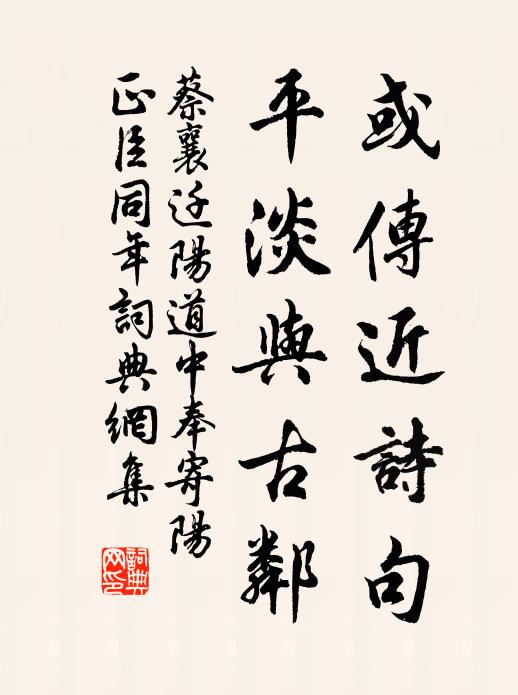 或傳近詩句
平淡與古鄰
蔡襄迁陽道中奉寄陽
正臣同年詞典網集
詞典網印